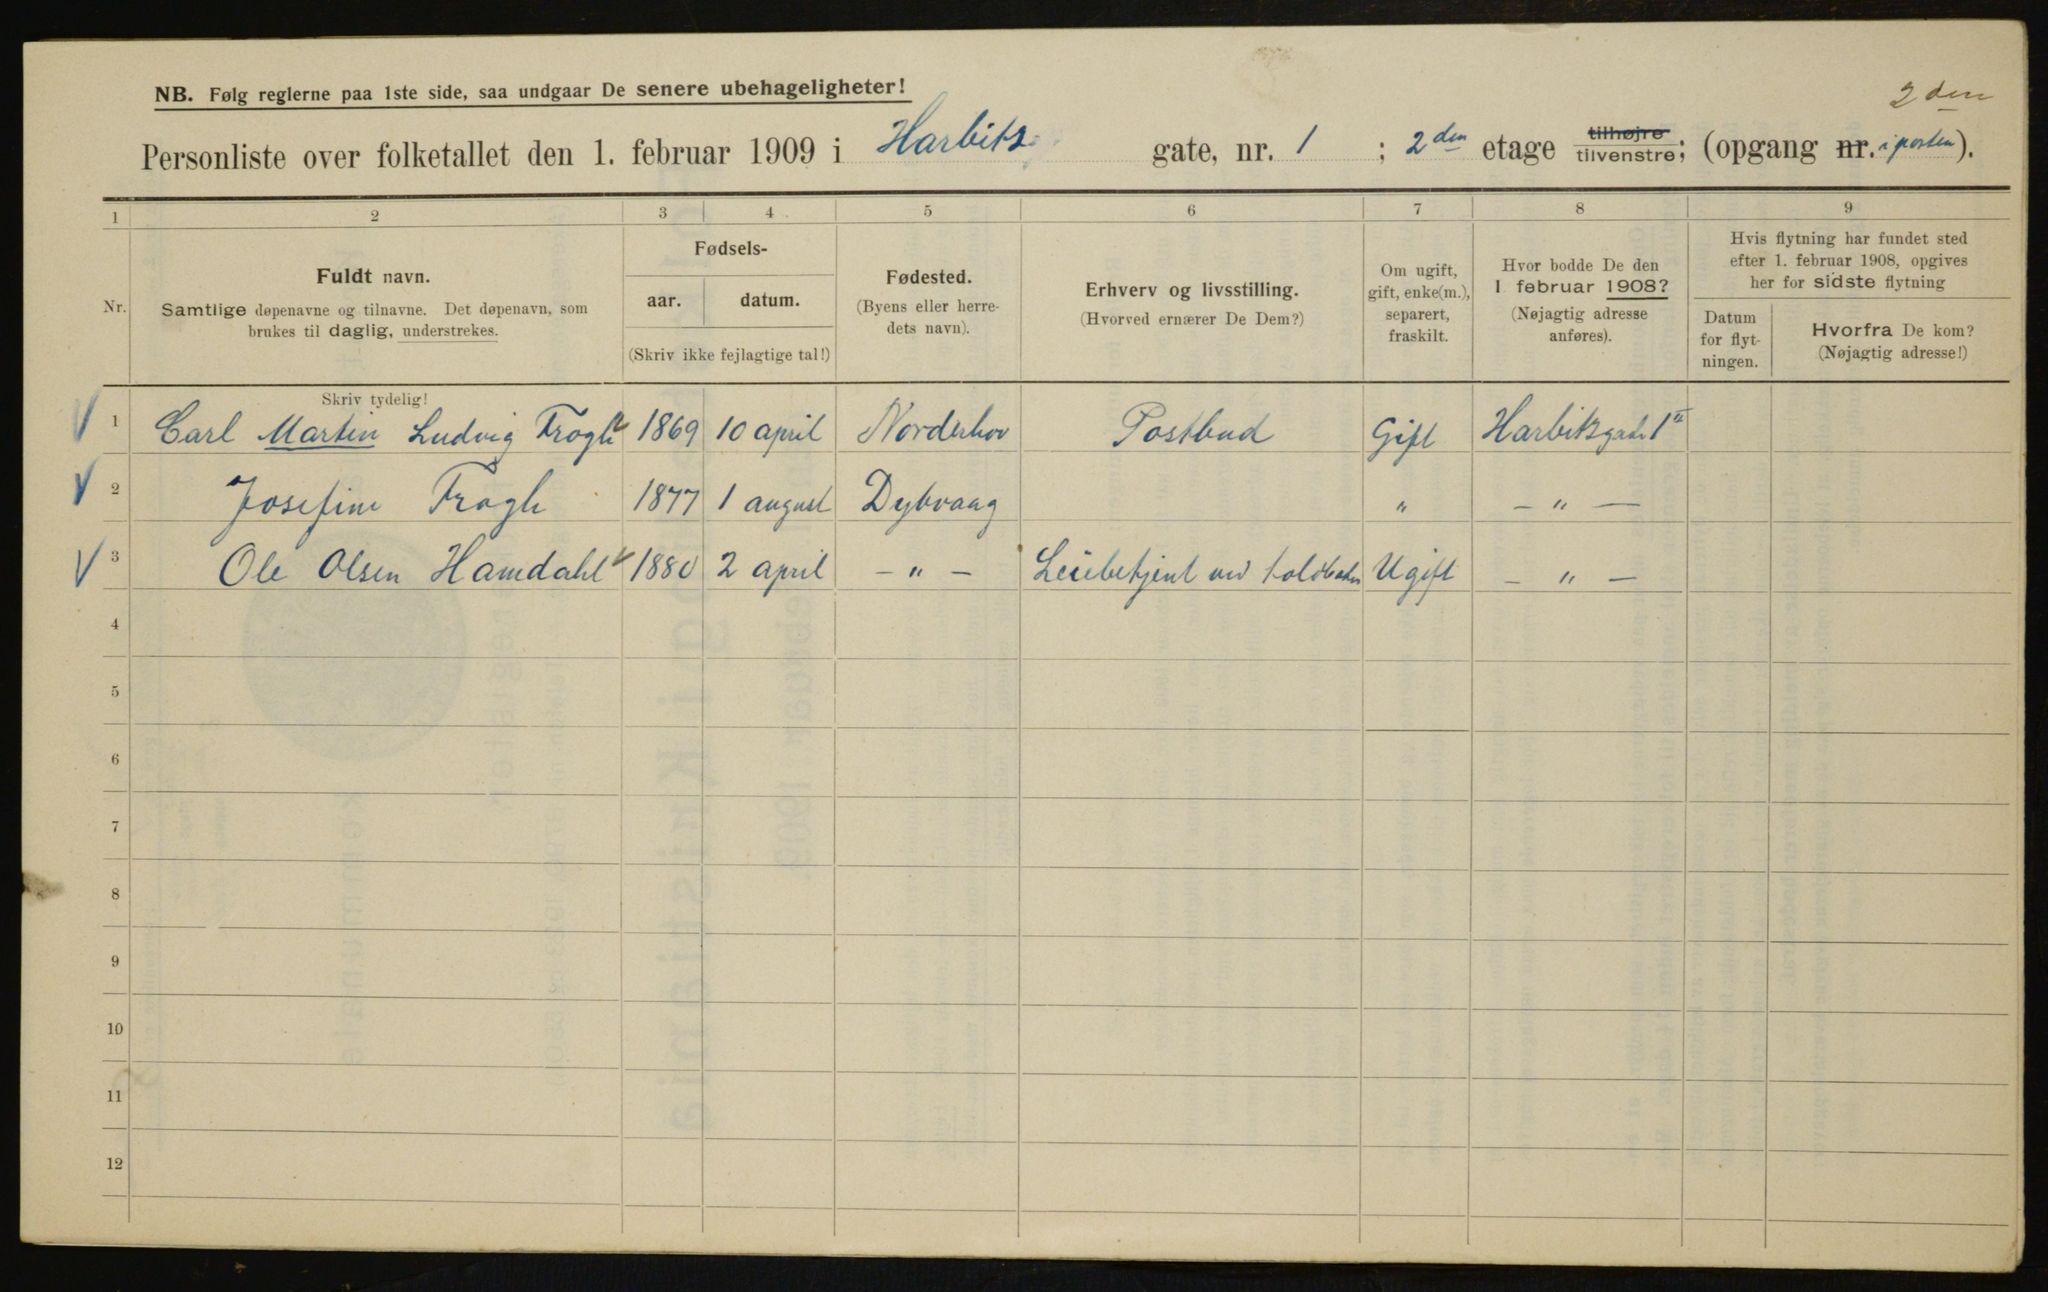 2 den
NB. Følg reglerne paa 1ste side, saa undgaar De senere ubehageligheter!
Personliste over folketallet den 1. februar 1909 i Harbitz gate, nr. 1 ; 2 den etage tilhøjre tilvenstre; (opgang nr. i porten).
1 2 3 4 5 6 7 8 9
Nr.
Fuldt navn.
Samtlige døpenavne og tilnavne. Det døpenavn, som
brukes til daglig, understrekes.
Fødsels-
aar. datum.
(Skriv ikke fejlagtige tal!)
Fødested.
(Byens eller herre-
dets navn).
Erhverv og livsstilling.
(Hvorved ernærer De Dem?)
Om ugift,
gift, enke(m.),
separert,
fraskilt.
Hvor bodde De den
1 februar 1908?
(Nøjagtig adresse
anføres).
Hvis flytning har fundet sted
efter 1. februar 1908, opgives
her for sidste flytning
Datum
for flyt-
ningen.
Hvorfra De kom?
(Nøjagtig adresse!)
Skriv tydelig!
1 Carl Martin Ludvig Trogh 1869 10 april Norderhov Postbud Gift Harbitzgade 1 II
2 Josefine Trogh 1877 1 august Dybvaag " – " –
3 Ole Olsen Hamdahl 1880 2 april – " – Ugift – " –
4
5
6
7
8
9
10
11
12